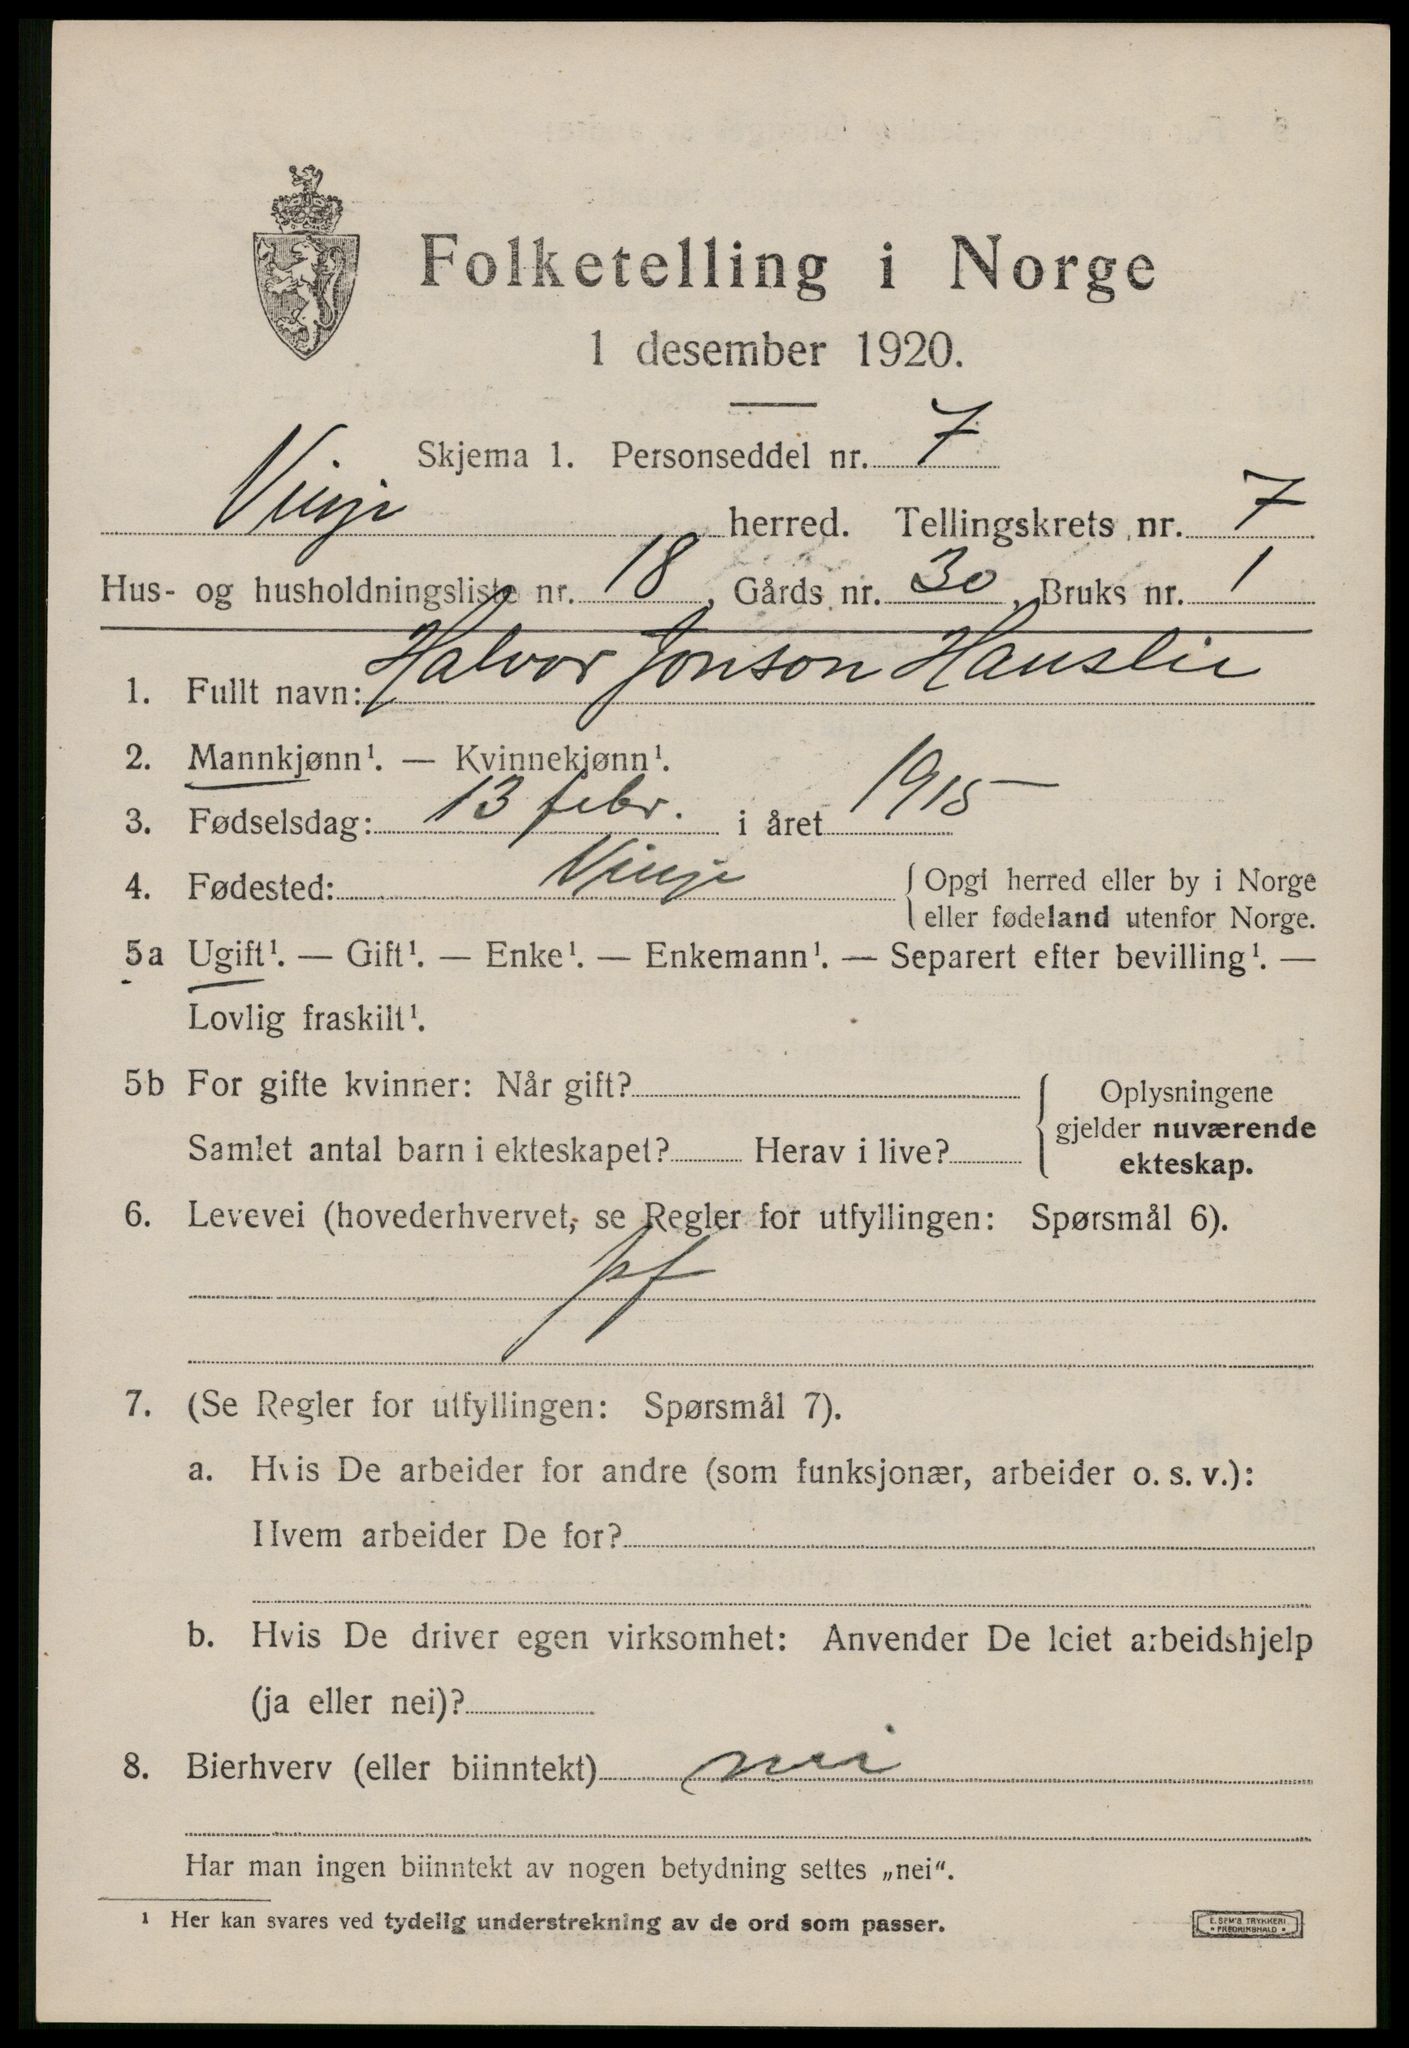 Folketelling i Norge
1 desember 1920.
Skjema 1. Personseddel nr. 7
Vinje herred. Tellingskrets nr. 7
Hus- og husholdningsliste nr. 18, Gårds nr. 30, Bruks nr. 1
1. Fullt navn: Halvor Jonson Hauslie
2. Mannkjønn¹. — Kvinnekjønn¹.
3. Fødselsdag: 13 febr. i året 1915
4. Fødested: Vinje {Opgi herred eller by i Norge
eller fødeland utenfor Norge.
5a Ugift¹. — Gift¹. — Enke¹. — Enkemann¹. — Separert efter bevilling¹. —
Lovlig fraskilt¹.
5b For gifte kvinner: Når gift?
Samlet antal barn i ekteskapet? Herav i live?
{Oplysningene
gjelder nuværende
ekteskap.
6. Levevei (hovederhvervet, se Regler for utfyllingen: Spørsmål 6).
pf
7. (Se Regler for utfyllingen: Spørsmål 7).
a. Hvis De arbeider for andre (som funksjonær, arbeider o. s. v.):
Hvem arbeider De for?
b. Hvis De driver egen virksomhet: Anvender De leiet arbeidshjelp
(ja eller nei)?
8. Bierhverv (eller biinntekt) nei
Har man ingen biinntekt av nogen betydning settes „nei“.
¹ Her kan svares ved tydelig understrekning av de ord som passer.
E. SEM'S TRYKKERI
• FREDRIKSHALD •